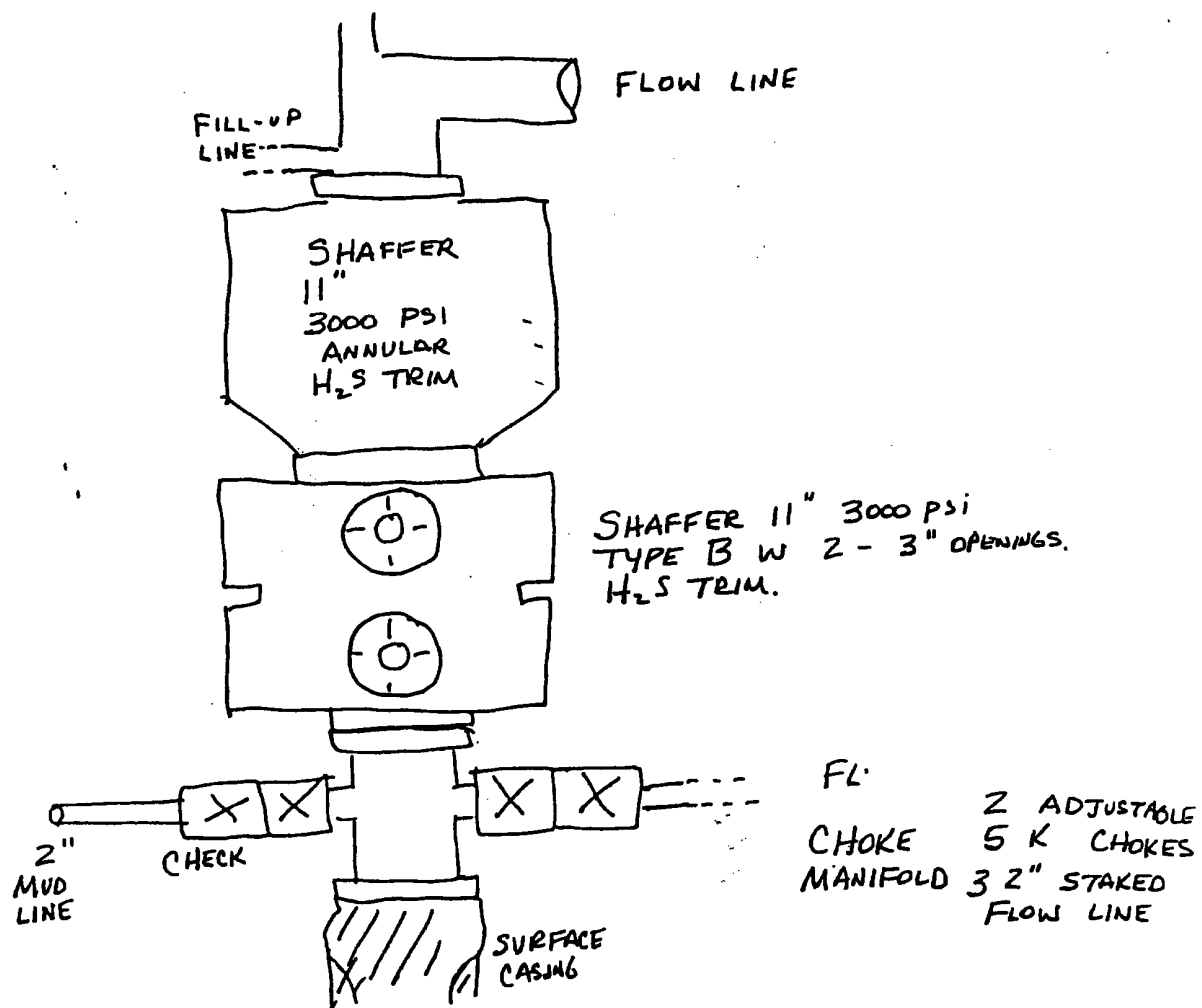 FLOW LINE
FILL-UP
LINE
SHAFFER
11"
3000 PSI
ANNULAR
H₂S TRIM
SHAFFER 11" 3000 PSi
TYPE B W 2 - 3" OPENINGS.
H₂S TRIM.
2"
MUD
LINE
CHECK
FL.
2 ADJUSTABLE
CHOKE 5 K CHOKES
MANIFOLD 3 2" STAKED
FLOW LINE
SURFACE
CASING